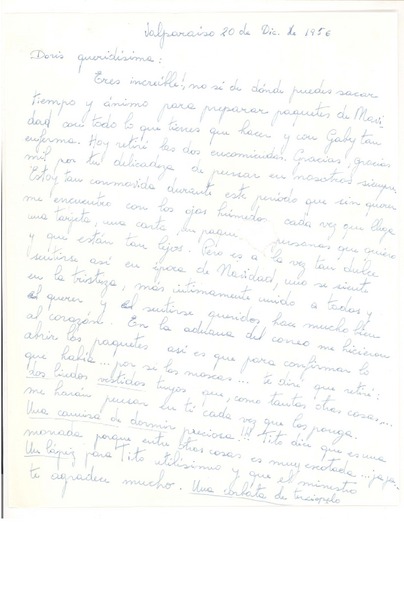 Valparaíso 20 de Dic. de 1956
Doris queridísima:
Eres increíble!, no sé de dónde puedes sacar
tiempo y ánimo para preparar paquetes de Navi-
dad con todo lo que tienes que hacer y con Gaby tan
enferma. Hoy retiré las dos encomiendas. Gracias, gracias
mil por tu delicadeza de pensar en nosotros siempre.
Estoy tan conmovida durante este período que sin querer
me encuentro con los ojos húmedos cada vez que llega
una tarjeta, una carta, un paquete personas que quiero
y que están tan lejos. Pero es a la vez tan dulce
sentirse así en época de Navidad, uno se siente
en la tristeza, más íntimamente unido a todos y
el querer y el sentirse queridos, hace mucho bien
al corazón. En la aduana del correo me hicieron
abrir los paquetes así es que para confirmar lo
que había... por si las moscas... te diré que retiré:
dos lindos vestidos tuyos que, como tantas otras cosas...
me harán pensar en ti cada vez que los ponga.
Una camisa de dormir preciosa!!! Tito dice que es una
monada porque entre otras cosas es muy escotada... ja, ja.
Un lápiz para Tito utilísimo y que el ministro
te agradece mucho. Una corbata de terciopelo